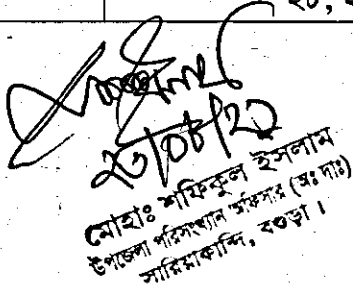 ২৩/০৮/২২
মোহাঃ শফিকুল ইসলাম
উপজেলা পরিসংখ্যান অফিসার (অঃ দাঃ)
সারিয়াকান্দি, বগুড়া।